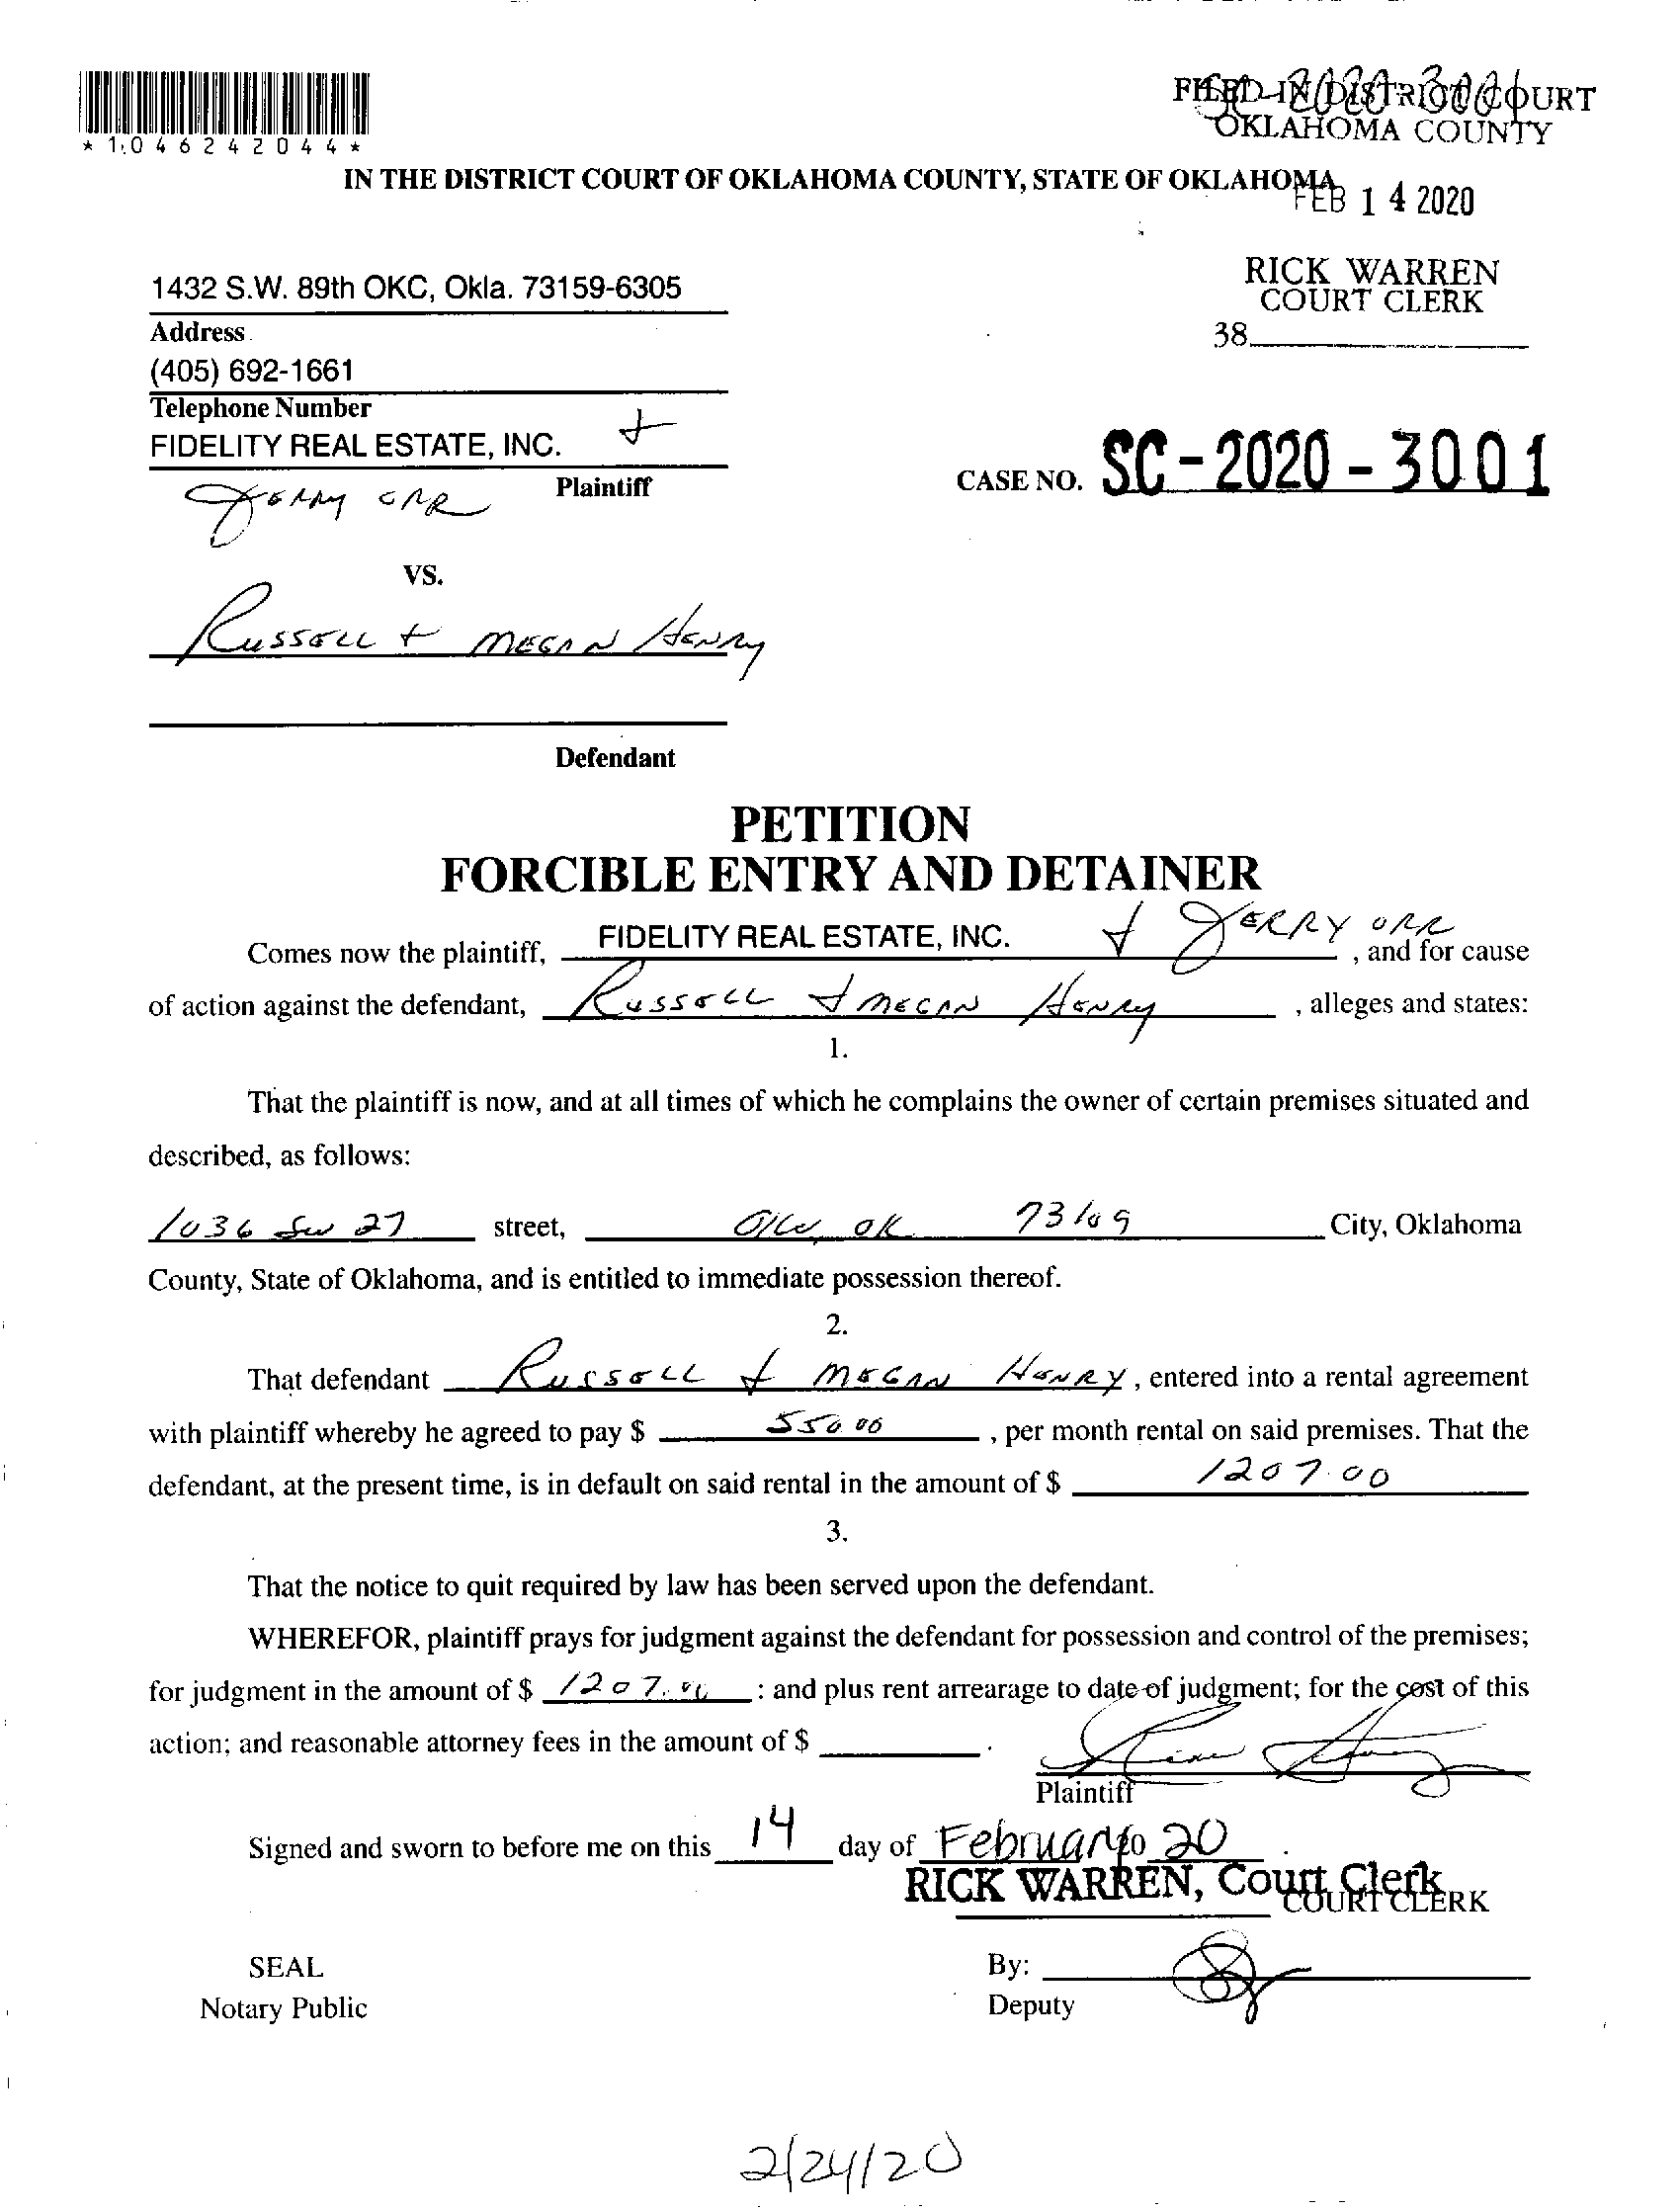 FILED IN DISTRICT COURT
OKLAHOMA COUNTY
* 1 0 4 6 2 4 2 0 4 4 *
IN THE DISTRICT COURT OF OKLAHOMA COUNTY, STATE OF OKLAHOMA
FEB 1 4 2020
RICK WARREN
COURT CLERK
38
1432 S.W. 89th OKC, Okla. 73159-6305
Address
(405) 692-1661
Telephone Number
FIDELITY REAL ESTATE, INC. +
Plaintiff
JERRY ORR
CASE NO. SC-2020-3001
VS.
RUSSELL + MEGAN HENRY
Defendant
PETITION
FORCIBLE ENTRY AND DETAINER
Comes now the plaintiff, FIDELITY REAL ESTATE, INC. + JERRY ORR, and for cause
of action against the defendant, RUSSELL + MEGAN HENRY, alleges and states:
1.
That the plaintiff is now, and at all times of which he complains the owner of certain premises situated and
described, as follows:
1036 SW 27 street, OKC, OK 73109 City, Oklahoma
County, State of Oklahoma, and is entitled to immediate possession thereof.
2.
That defendant RUSSELL + MEGAN HENRY, entered into a rental agreement
with plaintiff whereby he agreed to pay $ 550.00, per month rental on said premises. That the
defendant, at the present time, is in default on said rental in the amount of $ 1207.00
3.
That the notice to quit required by law has been served upon the defendant.
WHEREFOR, plaintiff prays for judgment against the defendant for possession and control of the premises;
for judgment in the amount of $ 1207.00 : and plus rent arrearage to date of judgment; for the cost of this
action; and reasonable attorney fees in the amount of $ .
Plaintiff
Signed and sworn to before me on this 14 day of February 20 20.
RICK WARREN, Court Clerk
COURT CLERK
SEAL
By:
Notary Public
Deputy
2/24/20